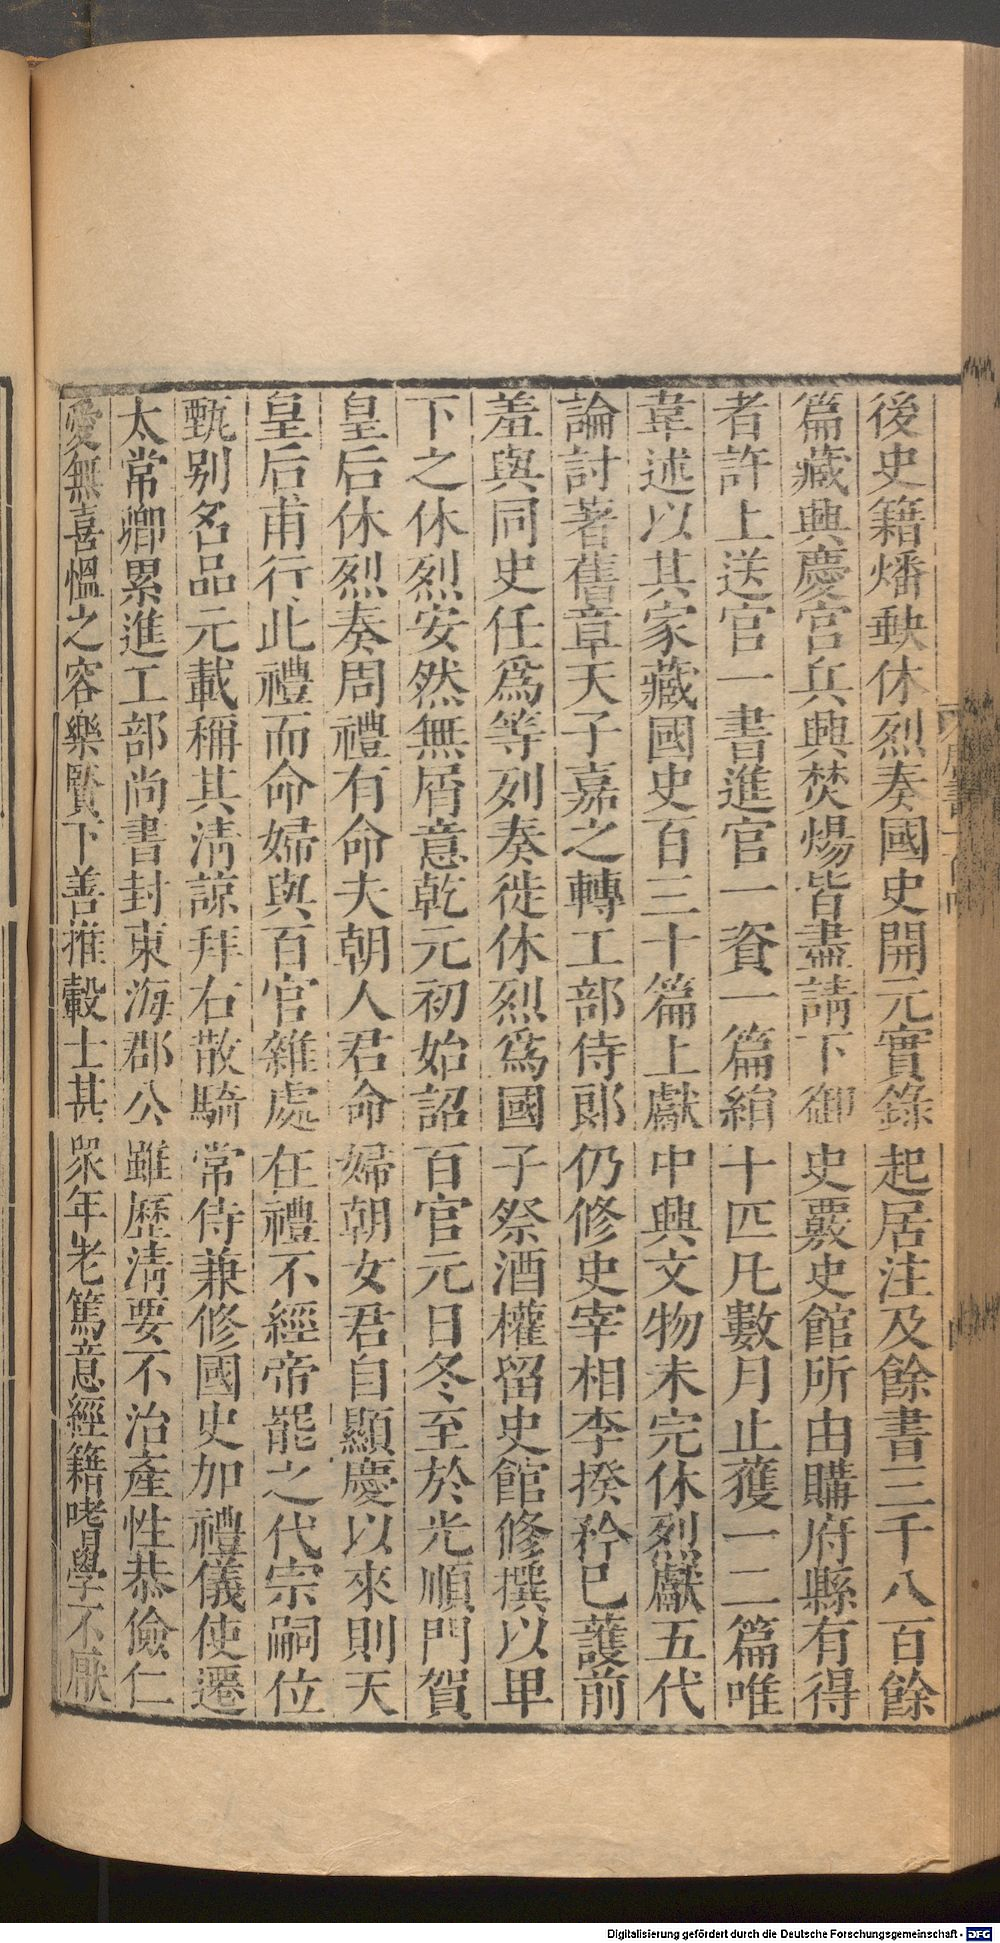 後史籍燔缺休烈奏國史開元實錄起居注及餘書三千八百餘
篇藏興慶宮兵興焚煬皆盡請下御史覈史館所由購府縣有得
者許上送官一書進官一資一篇絹十匹凡數月止獲一二篇唯
韋述以其家藏國史百三十篇上獻中興文物未完休烈獻五代
論討著舊章天子嘉之轉工部侍郎仍修史宰相李揆矜己護前
羞與同史任爲等列奏徙休烈爲國子祭酒權留史館修撰以卑
下之休烈安然無屑意乾元初始詔百官元日冬至於光順門賀
皇后休烈奏周禮有命夫朝人君命婦朝女君自顯慶以來則天
皇后甫行此禮而命婦與百官雜處在禮不經帝罷之代宗嗣位
甄别名品元載稱其清諒拜右散騎常侍兼修國史加禮儀使遷
太常卿累進工部尚書封東海郡公雖歷清要不治產性恭儉仁
愛無喜慍之容樂賢下善推轂士甚衆年老篤意經籍嗜學不厭
Digitalisierung gefördert durch die Deutsche Forschungsgemeinschaft - DFG